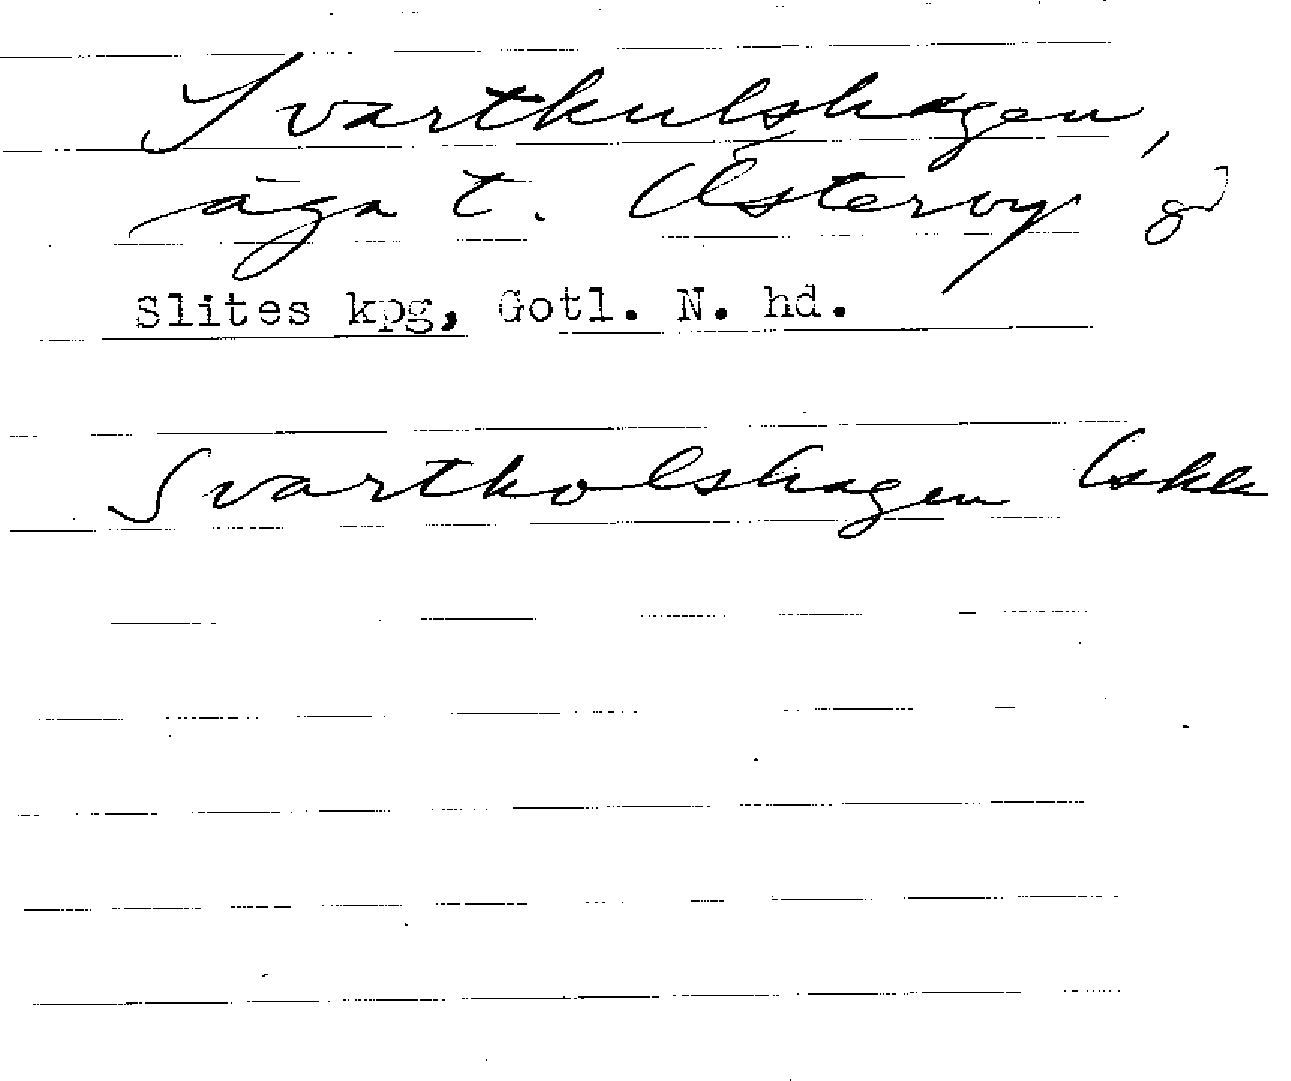 Svartkulshagen,
äga t. Österby gd
Slites kpg, Gotl. N. hd.
Svartkolshagen